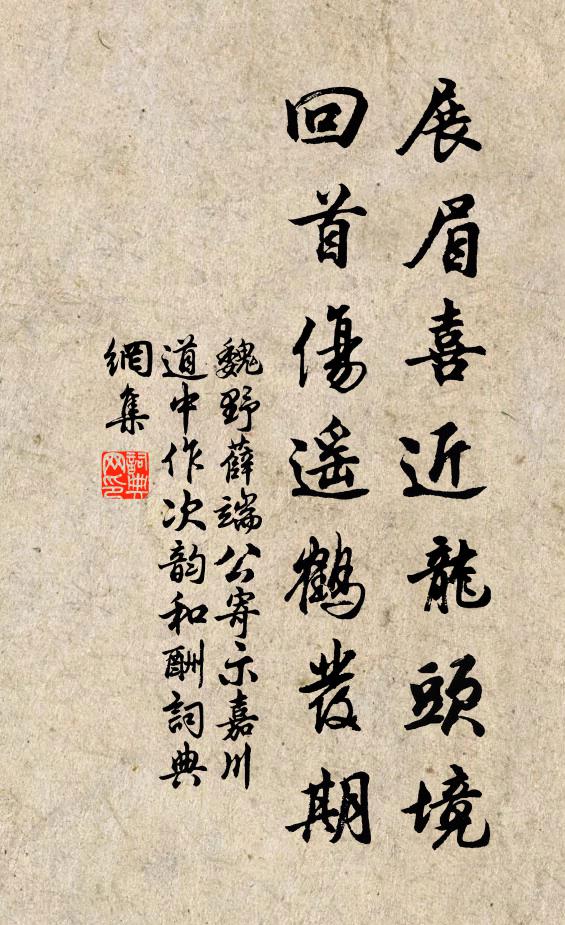 展眉喜近龍頭境
回首傷遥鶴發期
魏野薛端公寄示嘉川
道中作次韵和酬詞典
網集
詞典網印